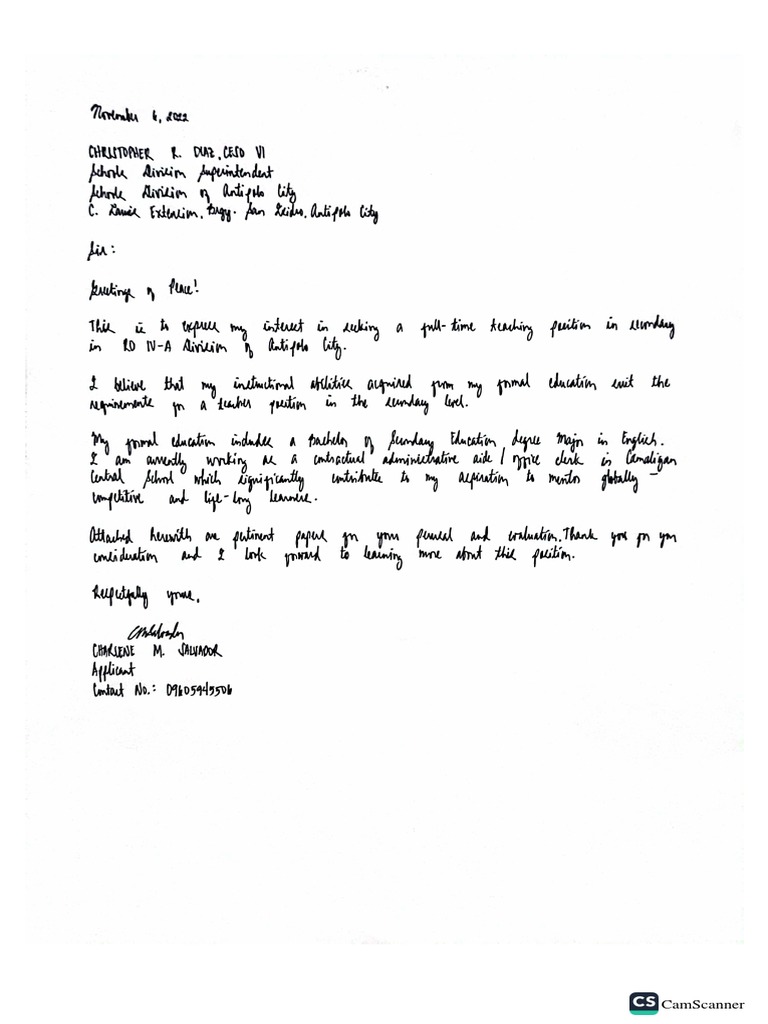 November 6, 2022
CHRISTOPHER R. DIAZ, CESO VI
Schools Division Superintendent
Schools Division of Antipolo City
C. Lawis Extension, Brgy. San Isidro, Antipolo City
Sir:
Greetings of Peace!
This is to express my interest in seeking a full-time teaching position in secondary
in RO IV-A Division of Antipolo City.
I believe that my instructional abilities acquired from my formal education suit the
requirements for a teacher position in the secondary level.
My formal education includes a Bachelor of Secondary Education degree Major in English.
I am currently working as a contractual administrative aide / office clerk in Camaligan
Central School which significantly contribute to my aspiration to mentor globally -
competitive and life-long learners.
Attached herewith are pertinent papers for your perusal and evaluation. Thank you for your
consideration and I look forward to learning more about this position.
Respectfully yours,
CHARLENE M. SALVADOR
Applicant
Contact No.: 09605945506
CS CamScanner